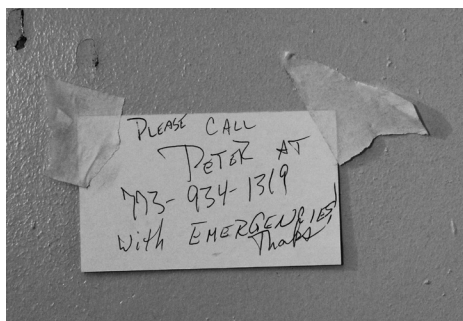 PLEASE CALL
PETER AT
773-934-1319
with EMERGENCIES,
Thanks